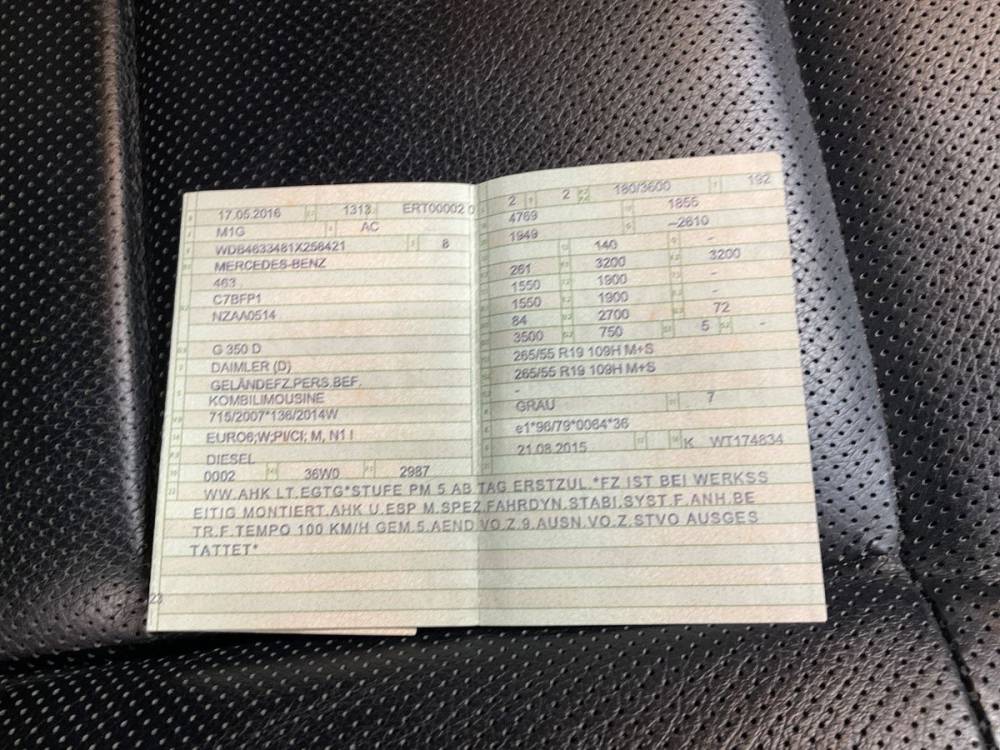 17.05.2016 1313 ERT00002 0
M1G AC
WDB4633481X258421 8
MERCEDES-BENZ
463
C7BFP1
NZAA0514
G 350 D
DAIMLER (D)
GELÄNDEFZ.PERS.BEF.
KOMBILIMOUSINE
715/2007*136/2014W
EURO6;W;PI/CI; M, N1 I
DIESEL
0002 36W0 2987
2 2 180/3600 192
4769 1855
1949 –2610
140 -
261 3200 3200
1550 1900 -
1550 1900 -
84 2700 72
3500 750 5 -
265/55 R19 109H M+S
265/55 R19 109H M+S
-
GRAU 7
e1*96/79*0064*36
21.08.2015 K WT174834
WW.AHK LT.EGTG*STUFE PM 5 AB TAG ERSTZUL.*FZ IST BEI WERKSS
EITIG MONTIERT.AHK U.ESP M.SPEZ.FAHRDYN.STABI.SYST.F.ANH.BE
TR.F.TEMPO 100 KM/H GEM.5.AEND.VO.Z.9.AUSN.VO.Z.STVO AUSGES
TATTET*
23